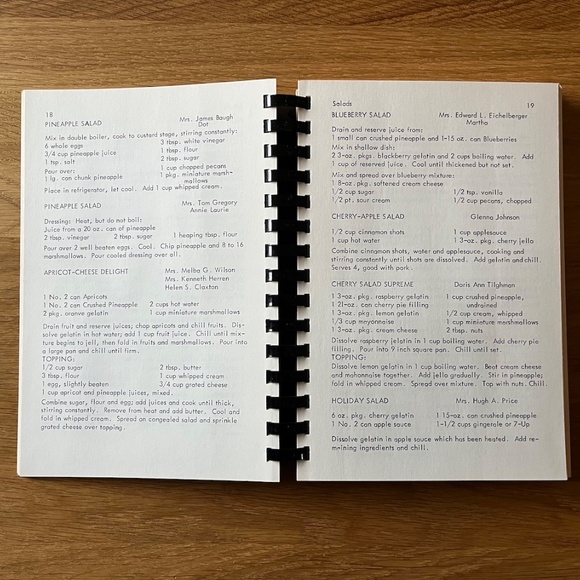 18
PINEAPPLE SALAD Mrs. James Baugh
Dot
Mix in double boiler, cook to custard stage, stirring constantly:
6 whole eggs 3 tbsp. white vinegar
3/4 cup pineapple juice 1 tbsp. flour
1 tsp. salt 2 tbsp. sugar
Pour over: 1 cup chopped pecans
1 lg. can chunk pineapple 1 pkg. miniature marsh-
mallows
Place in refrigerator, let cool. Add 1 cup whipped cream.
PINEAPPLE SALAD Mrs. Tom Gregory
Annie Laurie
Dressing: Heat, but do not boil:
Juice from a 20 oz. can of pineapple
2 tbsp. vinegar 2 tbsp. sugar 1 heaping tbsp. flour
Pour over 2 well beaten eggs. Cool. Chip pineapple and 8 to 16
marshmallows. Pour cooled dressing over all.
APRICOT-CHEESE DELIGHT Mrs. Melba G. Wilson
Mrs. Kenneth Herren
Helen S. Claxton
1 No. 2 can Apricots
1 No. 2 can Crushed Pineapple 2 cups hot water
2 pkg. orange gelatin 1 cup miniature marshmallows
Drain fruit and reserve juices; chop apricots and chill fruits. Dis-
solve gelatin in hot water; add 1 cup fruit juice. Chill until mix-
ture begins to jell, then fold in fruits and marshmallows. Pour into
a large pan and chill until firm.
TOPPING:
1/2 cup sugar 2 tbsp. butter
3 tbsp. flour 1 cup whipped cream
1 egg, slightly beaten 3/4 cup grated cheese
1 cup apricot and pineapple juices, mixed.
Combine sugar, flour and egg; add juices and cook until thick,
stirring constantly. Remove from heat and add butter. Cool and
fold in whipped cream. Spread on congealed salad and sprinkle
grated cheese over topping.
Salads 19
BLUEBERRY SALAD Mrs. Edward L. Eichelberger
Martha
Drain and reserve juice from:
1 small can crushed pineapple and 1-15 oz. can Blueberries
Mix in shallow dish:
2 3-oz. pkg. blackberry gelatin and 2 cups boiling water. Add
1 cup of reserved juice. Cool until thickened but not set.
Mix and spread over blueberry mixture:
1 8-oz. pkg. softened cream cheese
1/2 cup sugar 1/2 tsp. vanilla
1/2 pt. sour cream 1/2 cup pecans, chopped
CHERRY-APPLE SALAD Glenna Johnson
1/2 cup cinnamon shots 1 cup applesauce
1 cup hot water 1 3-oz. pkg. cherry jello
Combine cinnamon shots, water and applesauce, cooking and
stirring constantly until shots are dissolved. Add gelatin and chill.
Serves 4, good with pork.
CHERRY SALAD SUPREME Doris Ann Tilghman
1 3-oz. pkg. raspberry gelatin 1 cup crushed pineapple,
1 21-oz. can cherry pie filling undrained
1 3-oz. pkg. lemon gelatin 1/2 cup cream, whipped
1/3 cup mayonnaise 1 cup miniature marshmallows
1 3-oz. pkg. cream cheese 2 tbsp. nuts
Dissolve raspberry jelatin in 1 cup boiling water. Add cherry pie
filling. Pour into 9 inch square pan. Chill until set.
TOPPING:
Dissolve lemon gelatin in 1 cup boiling water. Beat cream cheese
and mahonnaise together. Add jello gradually. Stir in pineapple;
fold in whipped cream. Spread over mixture. Top with nuts. Chill.
HOLIDAY SALAD Mrs. Hugh A. Price
6 oz. pkg. cherry gelatin 1 15-oz. can crushed pineapple
1 No. 2 can apple sauce 1-1/2 cups gingerale or 7-Up
Dissolve gelatin in apple sauce which has been heated. Add re-
maining ingredients and chill.